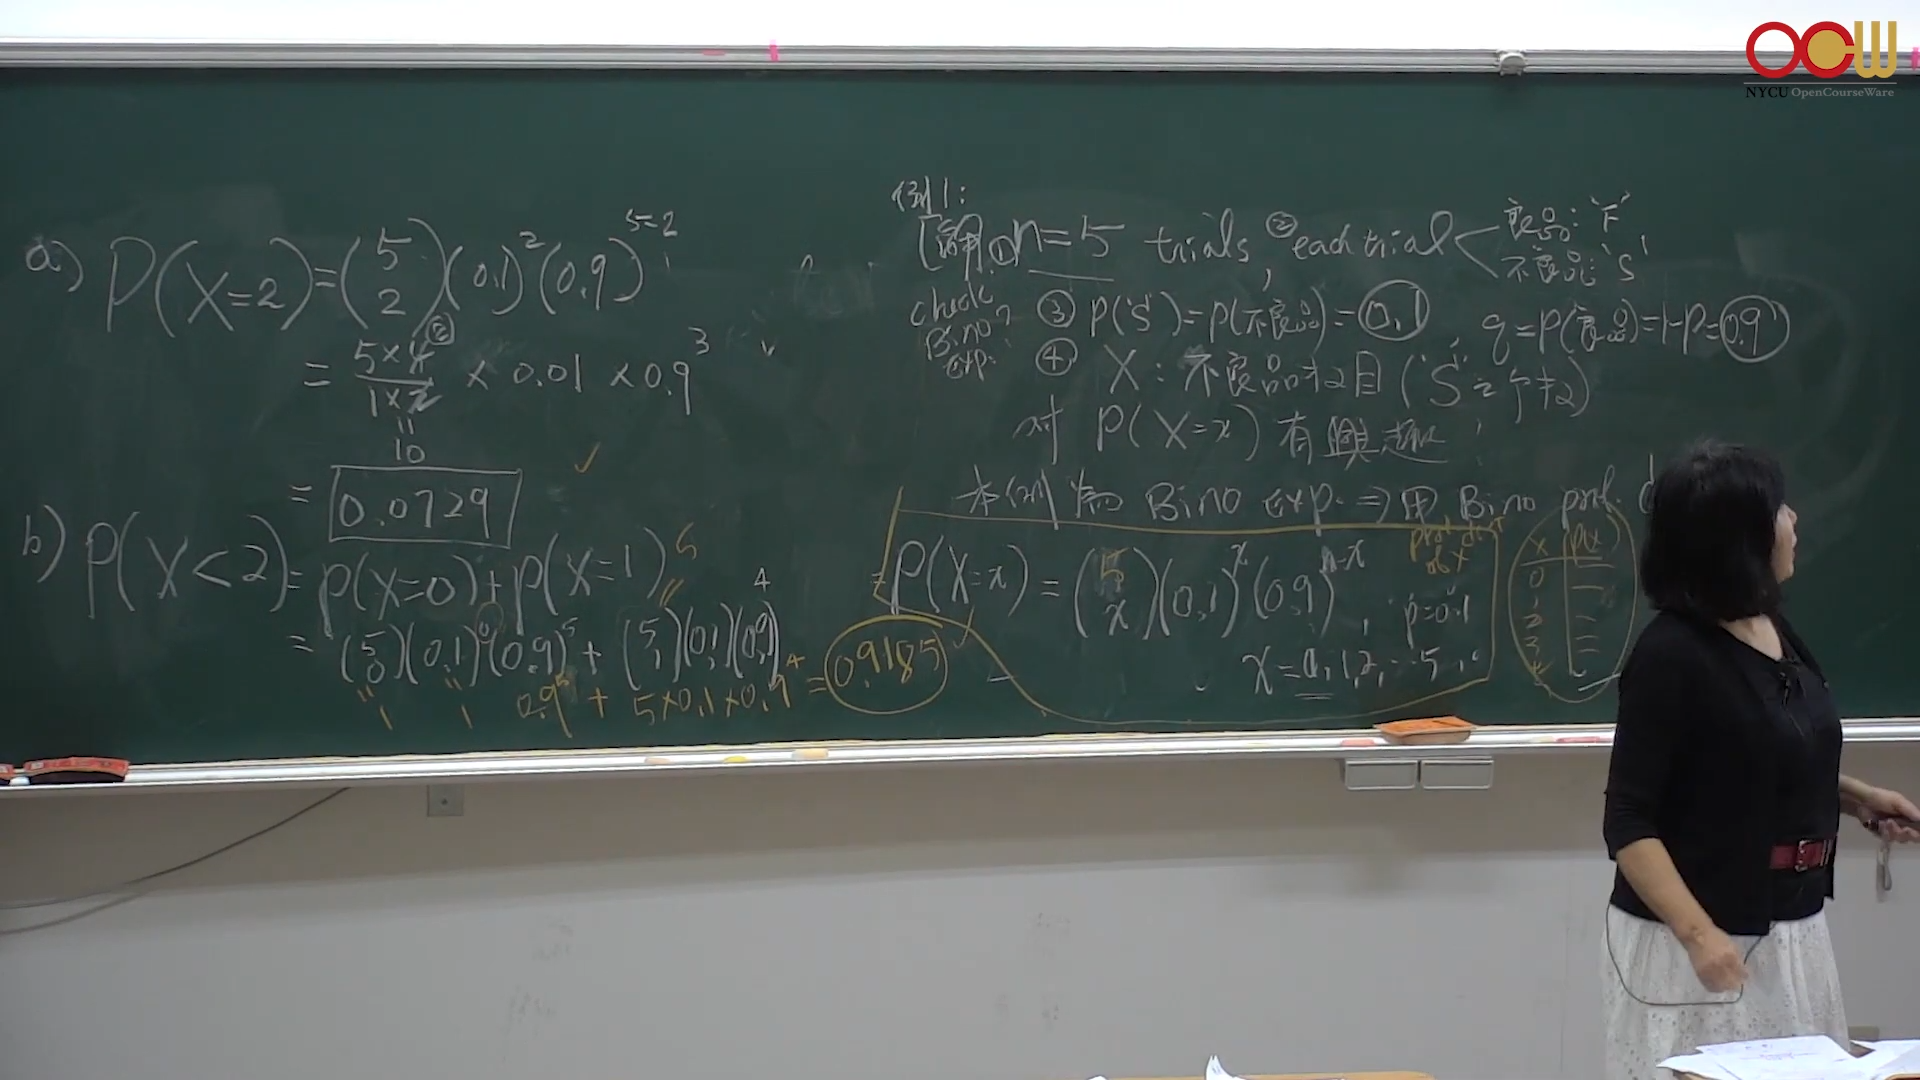 OCW
NYCU OpenCourseWare
a) P(X=2)=(5 2)(0.1)²(0.9)⁵⁻²
= 5×4/1×2 × 0.01 × 0.9³
②
"
10
= 0.0729
b) P(X<2)=P(X=0)+P(X=1)
5
= (5 0)(0.1)⁰(0.9)⁵ + (5 1)(0.1)(0.9)⁴
" 1 " 1 0.9⁵ + 5×0.1×0.9⁴ = 0.9185
例1:
① n=5 trials, ② each trial < 良品: 'F'
不良品: 'S'
check Bino? exp.
③ P('S')=P(不良品)=0.1 q=P(良品)=1-P=0.9
④ X: 不良品数目 ('S'之个数)
对 P(X=x) 有興趣
本例為 Bino exp. ⇒ 用 Bino prob. d
P(X=x) = (5 x)(0.1)ˣ(0.9)ⁿ⁻ˣ, p=0.1
prob dist of X
x=0,1,2,...5
x P(x)
0
1
2
3